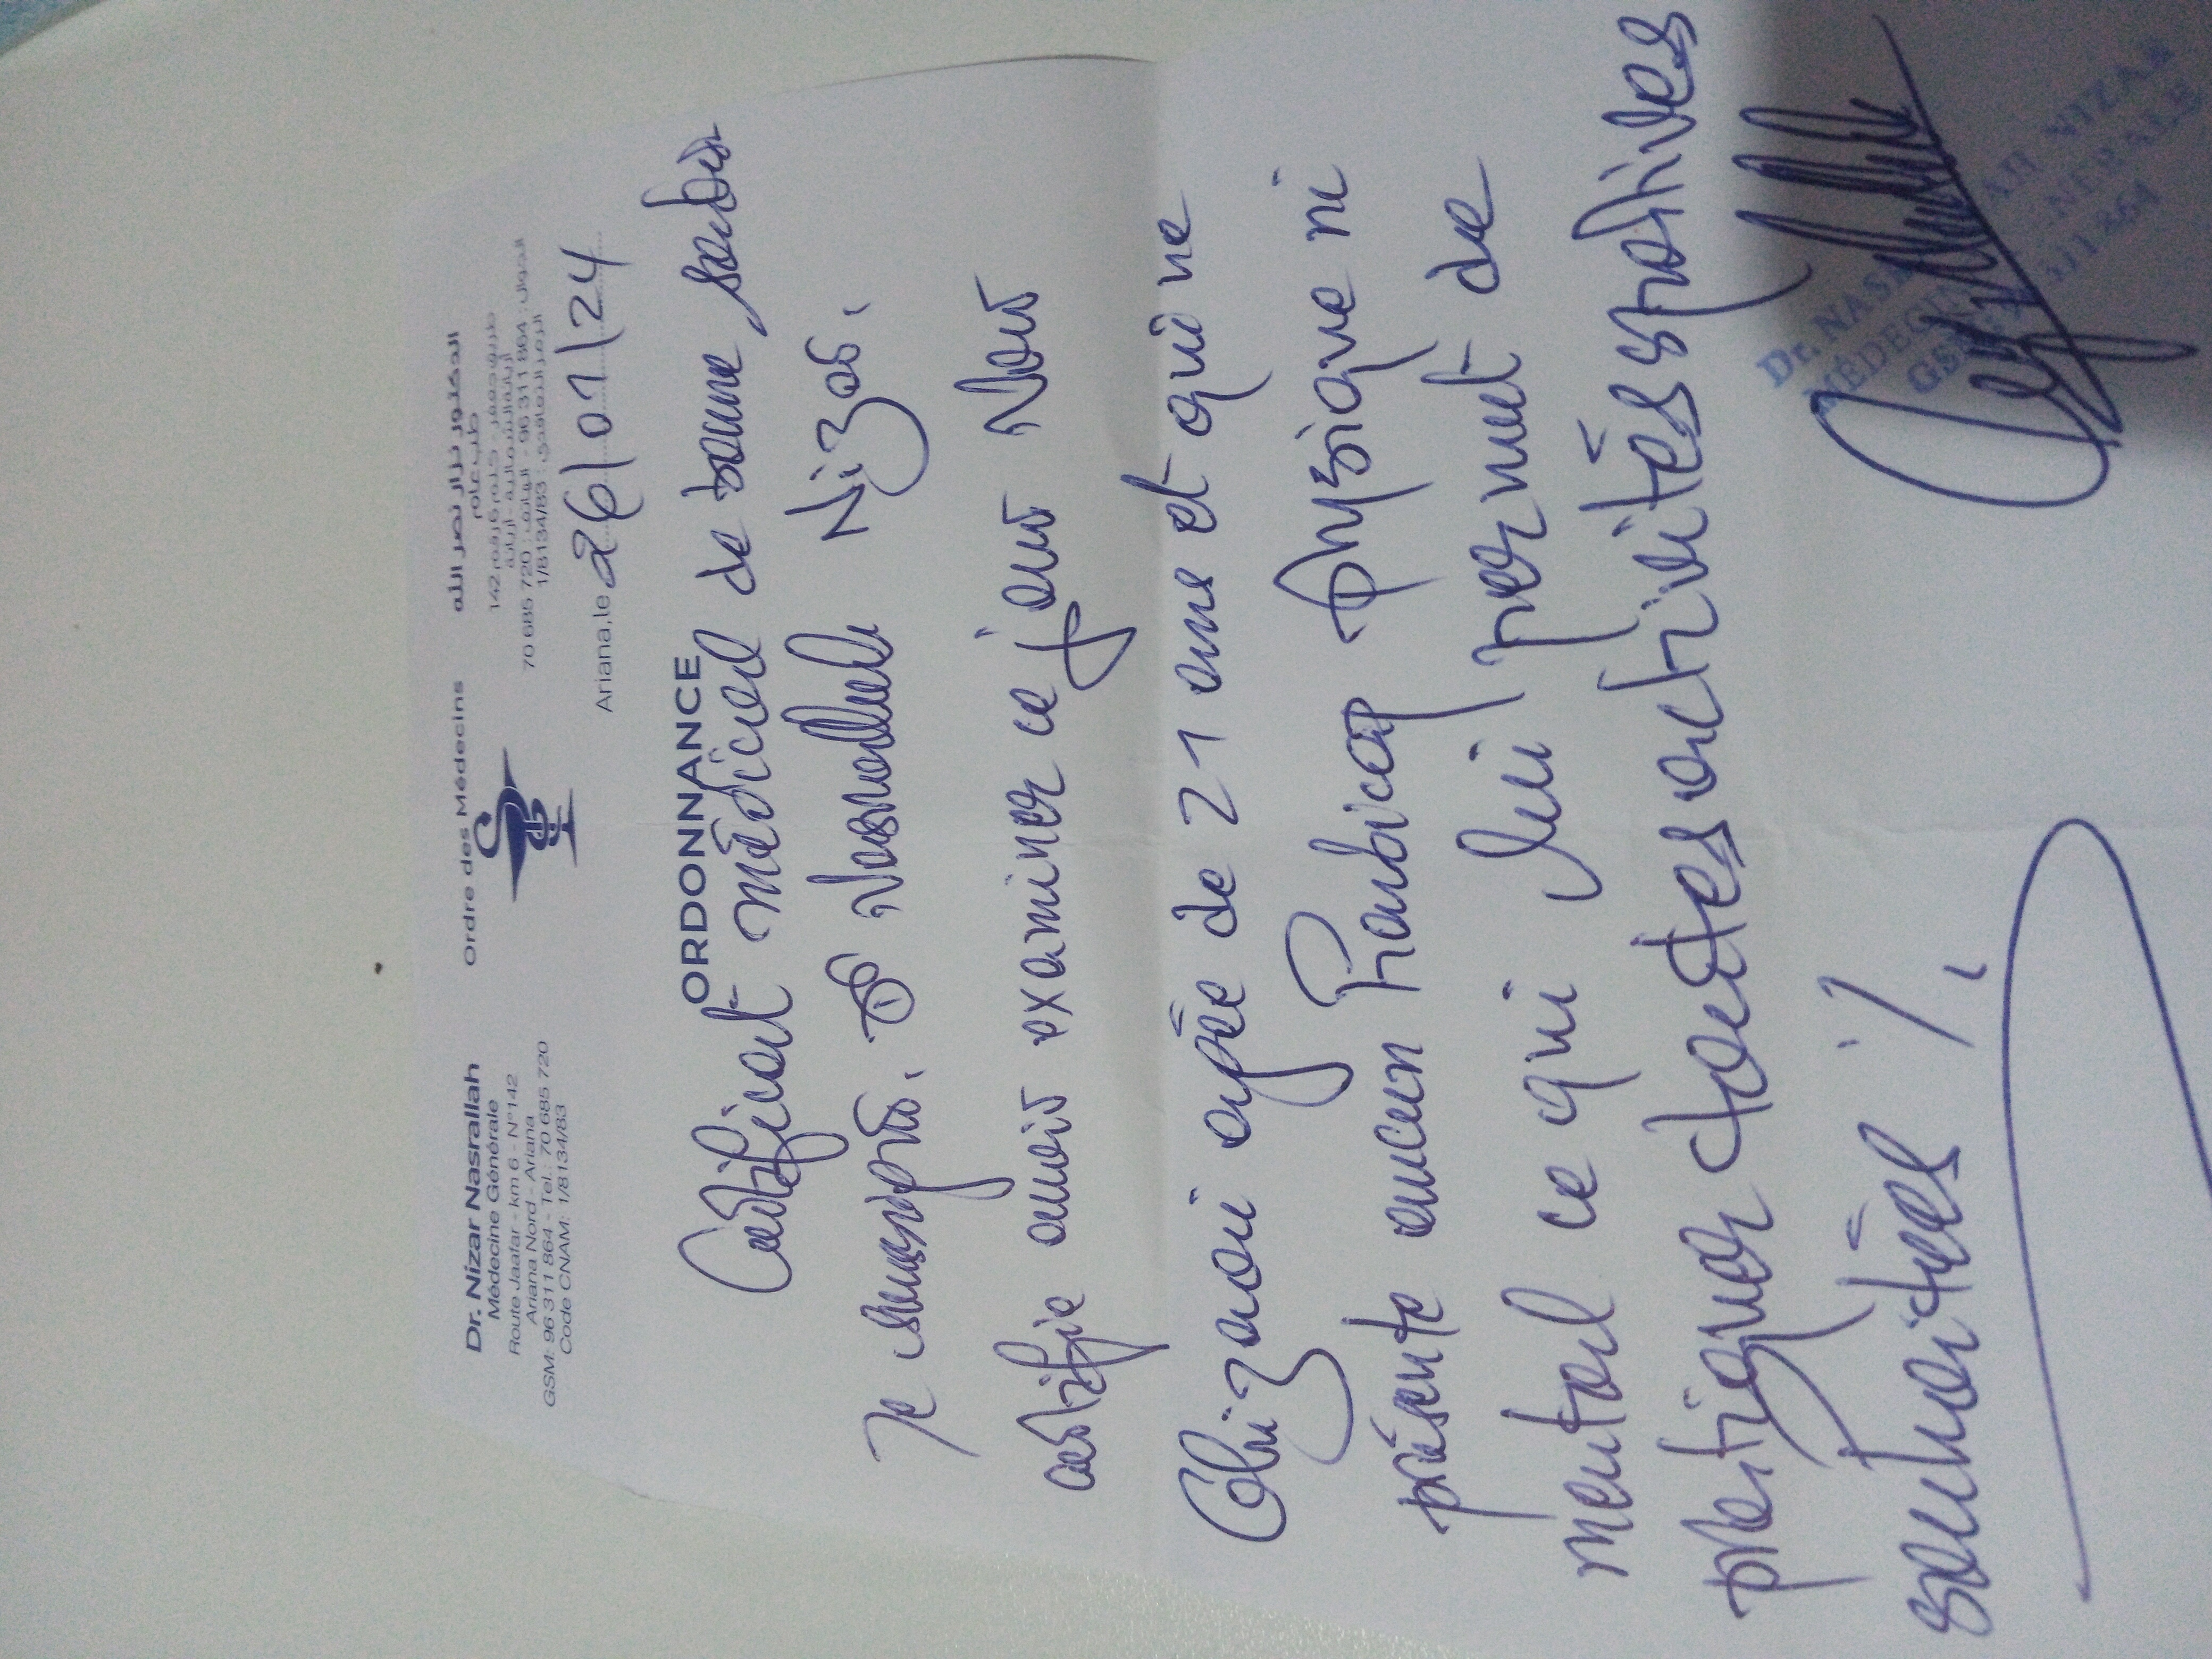 Dr. Nizar Nasrallah
Médecine Générale
Route Jaafar - km 6 - N°142
Ariana Nord - Ariana
GSM: 96 311 864 - Tel.: 70 685 720
Code CNAM: 1/8134/83
Ordre des Médecins
الدكتور نزار نصر الله
طب عام
طريق جعفر - كلم 6 رقم 142
أريانة الشمالية - أريانة
الجوال : 864 311 96 - الهاتف : 720 685 70
الرمز التعاقدي : 1/8134/83
Ariana, le 26/01/24
ORDONNANCE
Certificat médical de bonne santé
Je soussigné. Dr Nasrallah Nizar.
certifie avoir examiner ce jour Nour
agée de 21 ans et qui ne
présente aucun handicap physique ni
mental ce qui lui permet de
pratiquer toutes activités sportives
souhaitées %.
Dr. NASRALLAH NIZAR
MÉDECINE GÉNÉRALE
GSM: 96 311 864